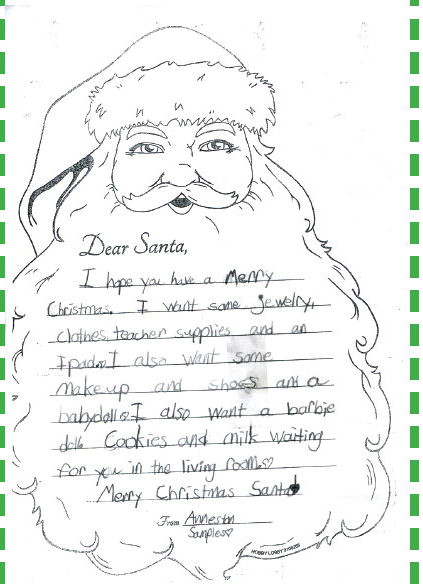 Dear Santa,
I hope you have a Merry
Christmas. I want some jewelry,
clothes, teacher supplies and an
Ipad. I also want some
makeup and shoes and a
babydoll. I also want a barbie
doll. Cookies and milk waiting
for you in the living room.♡
Merry Christmas Santa
From Anneston
Samples♡
HOBBY LOBBY